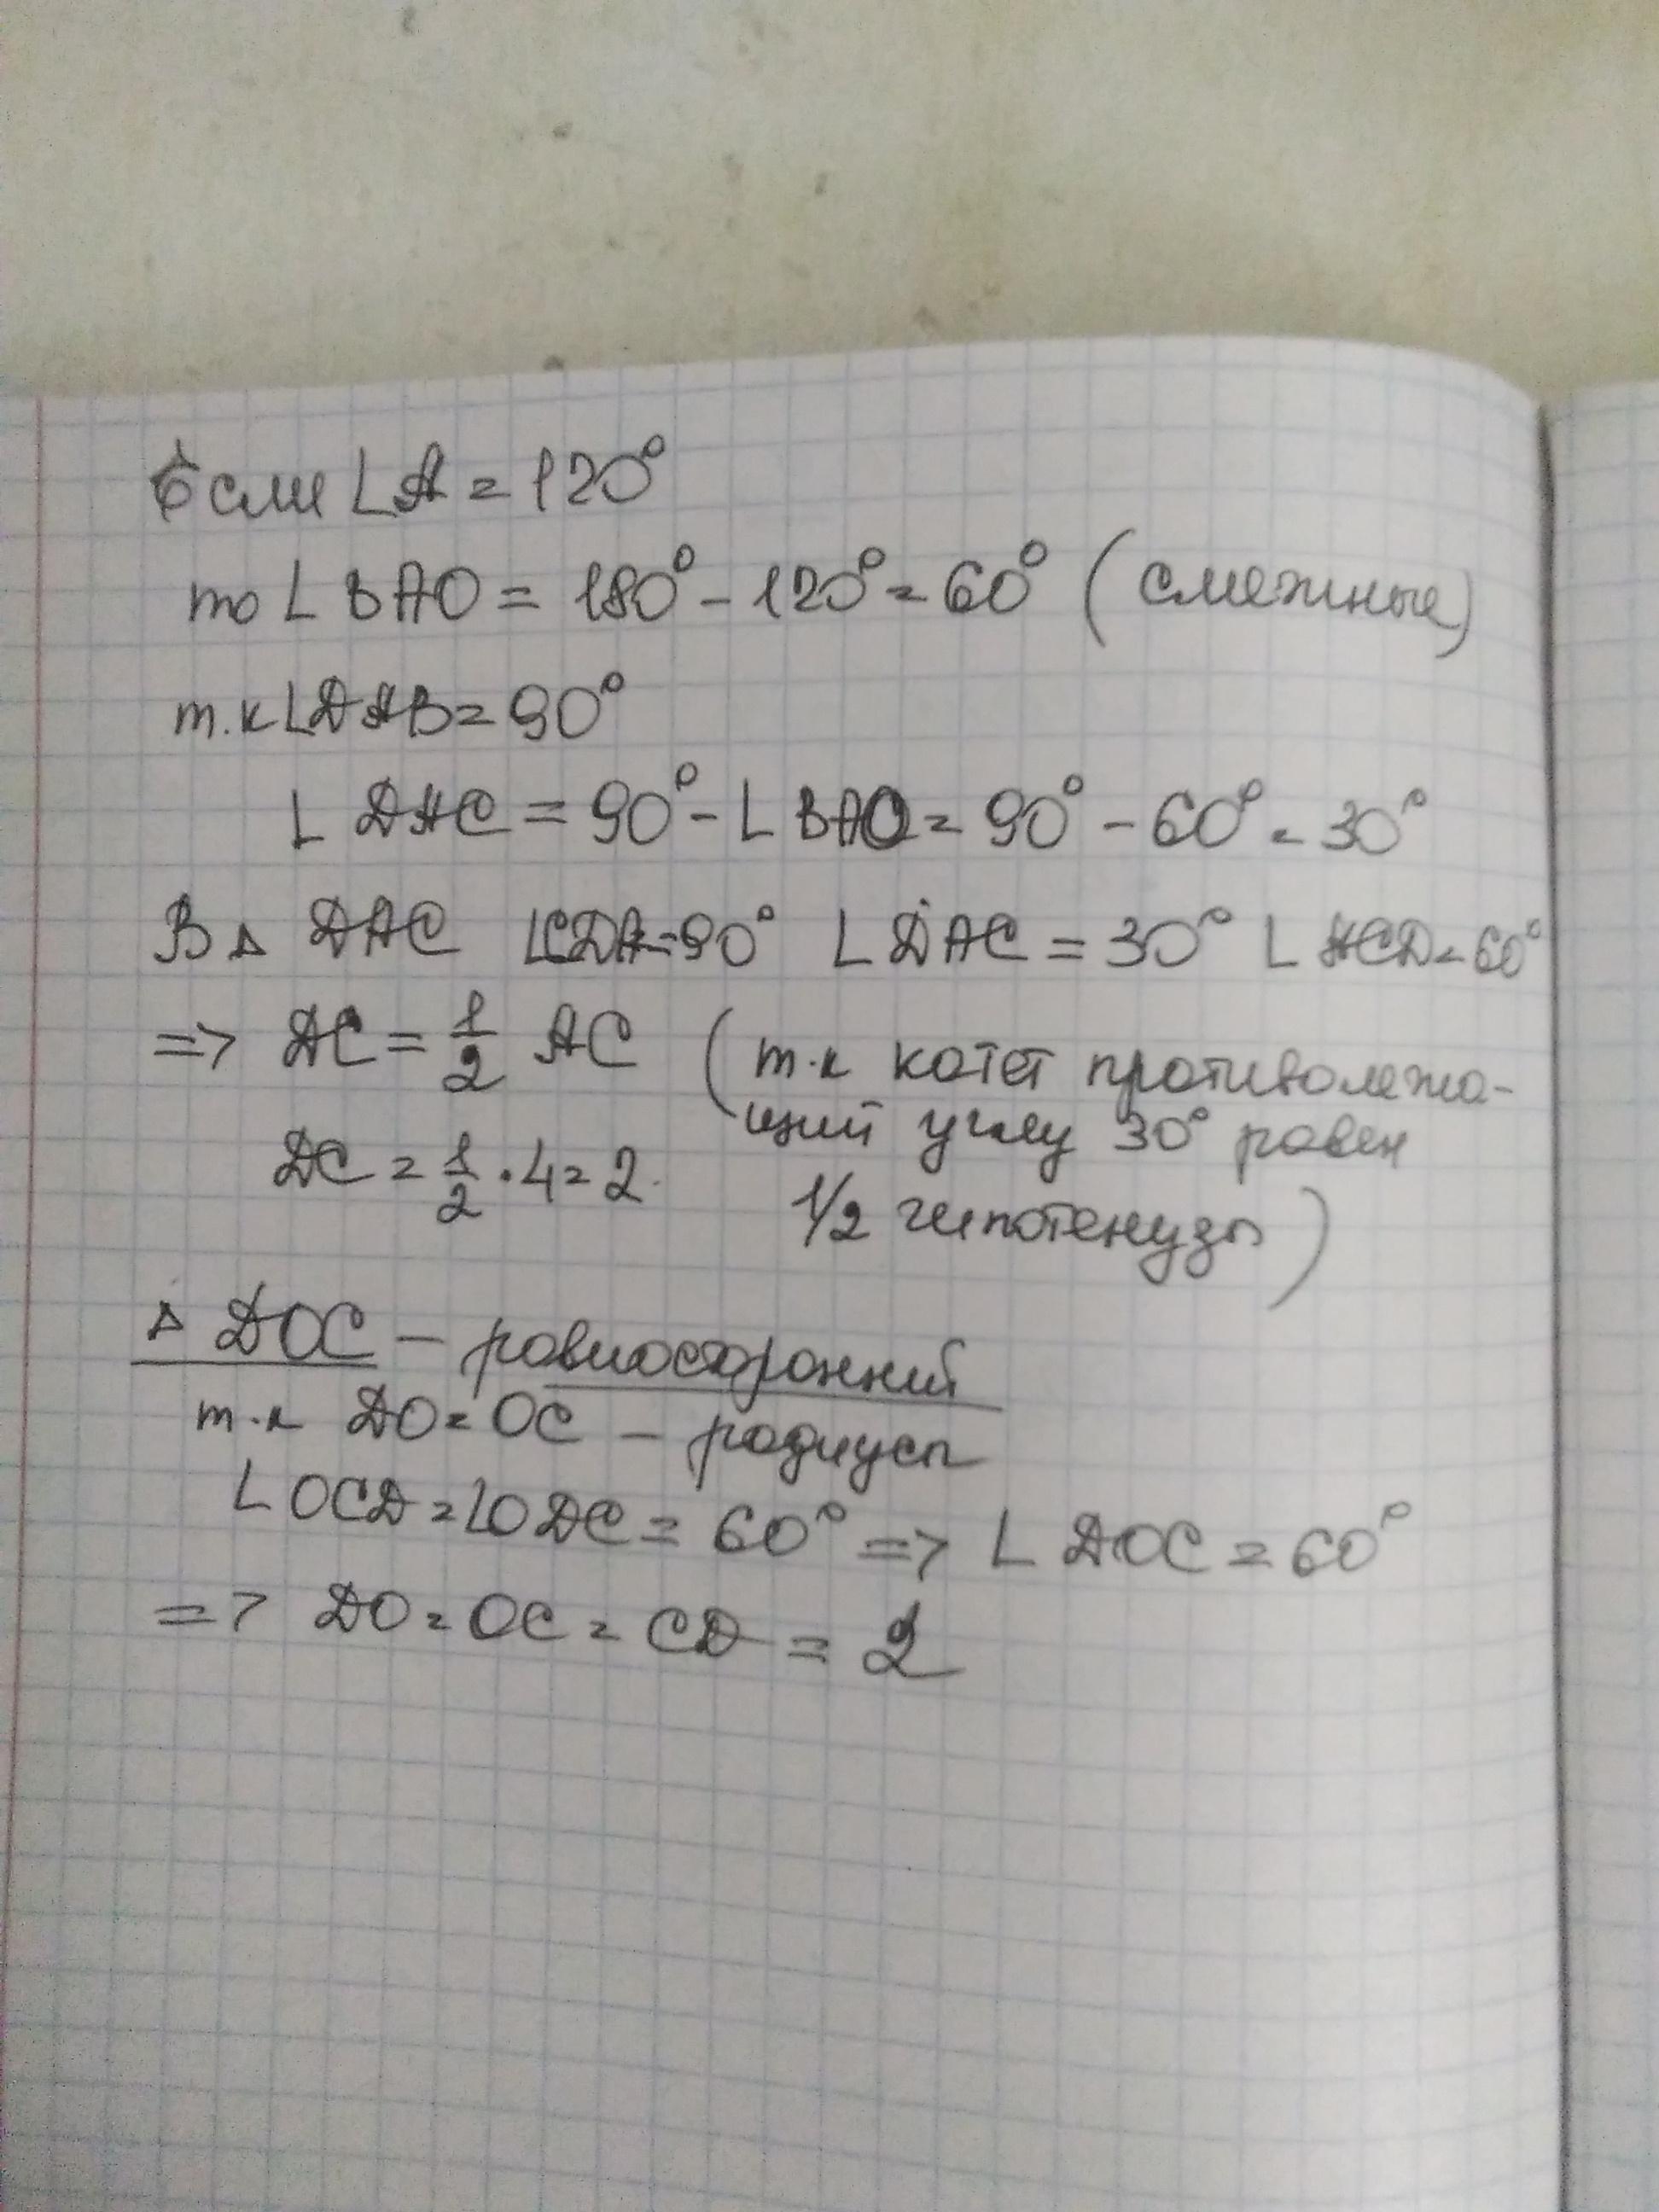 Если ∠A = 120°
то ∠ BAO = 180° - 120° = 60° (смежные)
т.к ∠DAB = 90°
∠ DAC = 90° - ∠ BAO = 90° - 60° = 30°
В △ DAC ∠CDA = 90° ∠ DAC = 30° ∠ ACD = 60°
=> DC = 1/2 AC (т.к катет противолежа-
щий углу 30° равен
DC = 1/2 · 4 = 2.
1/2 гипотенузы)
△ DOC – равносторонний
т.к DO = OC – радиусы
∠ OCD = ∠ODC = 60° => ∠ DOC = 60°
=> DO = OC = CD = 2